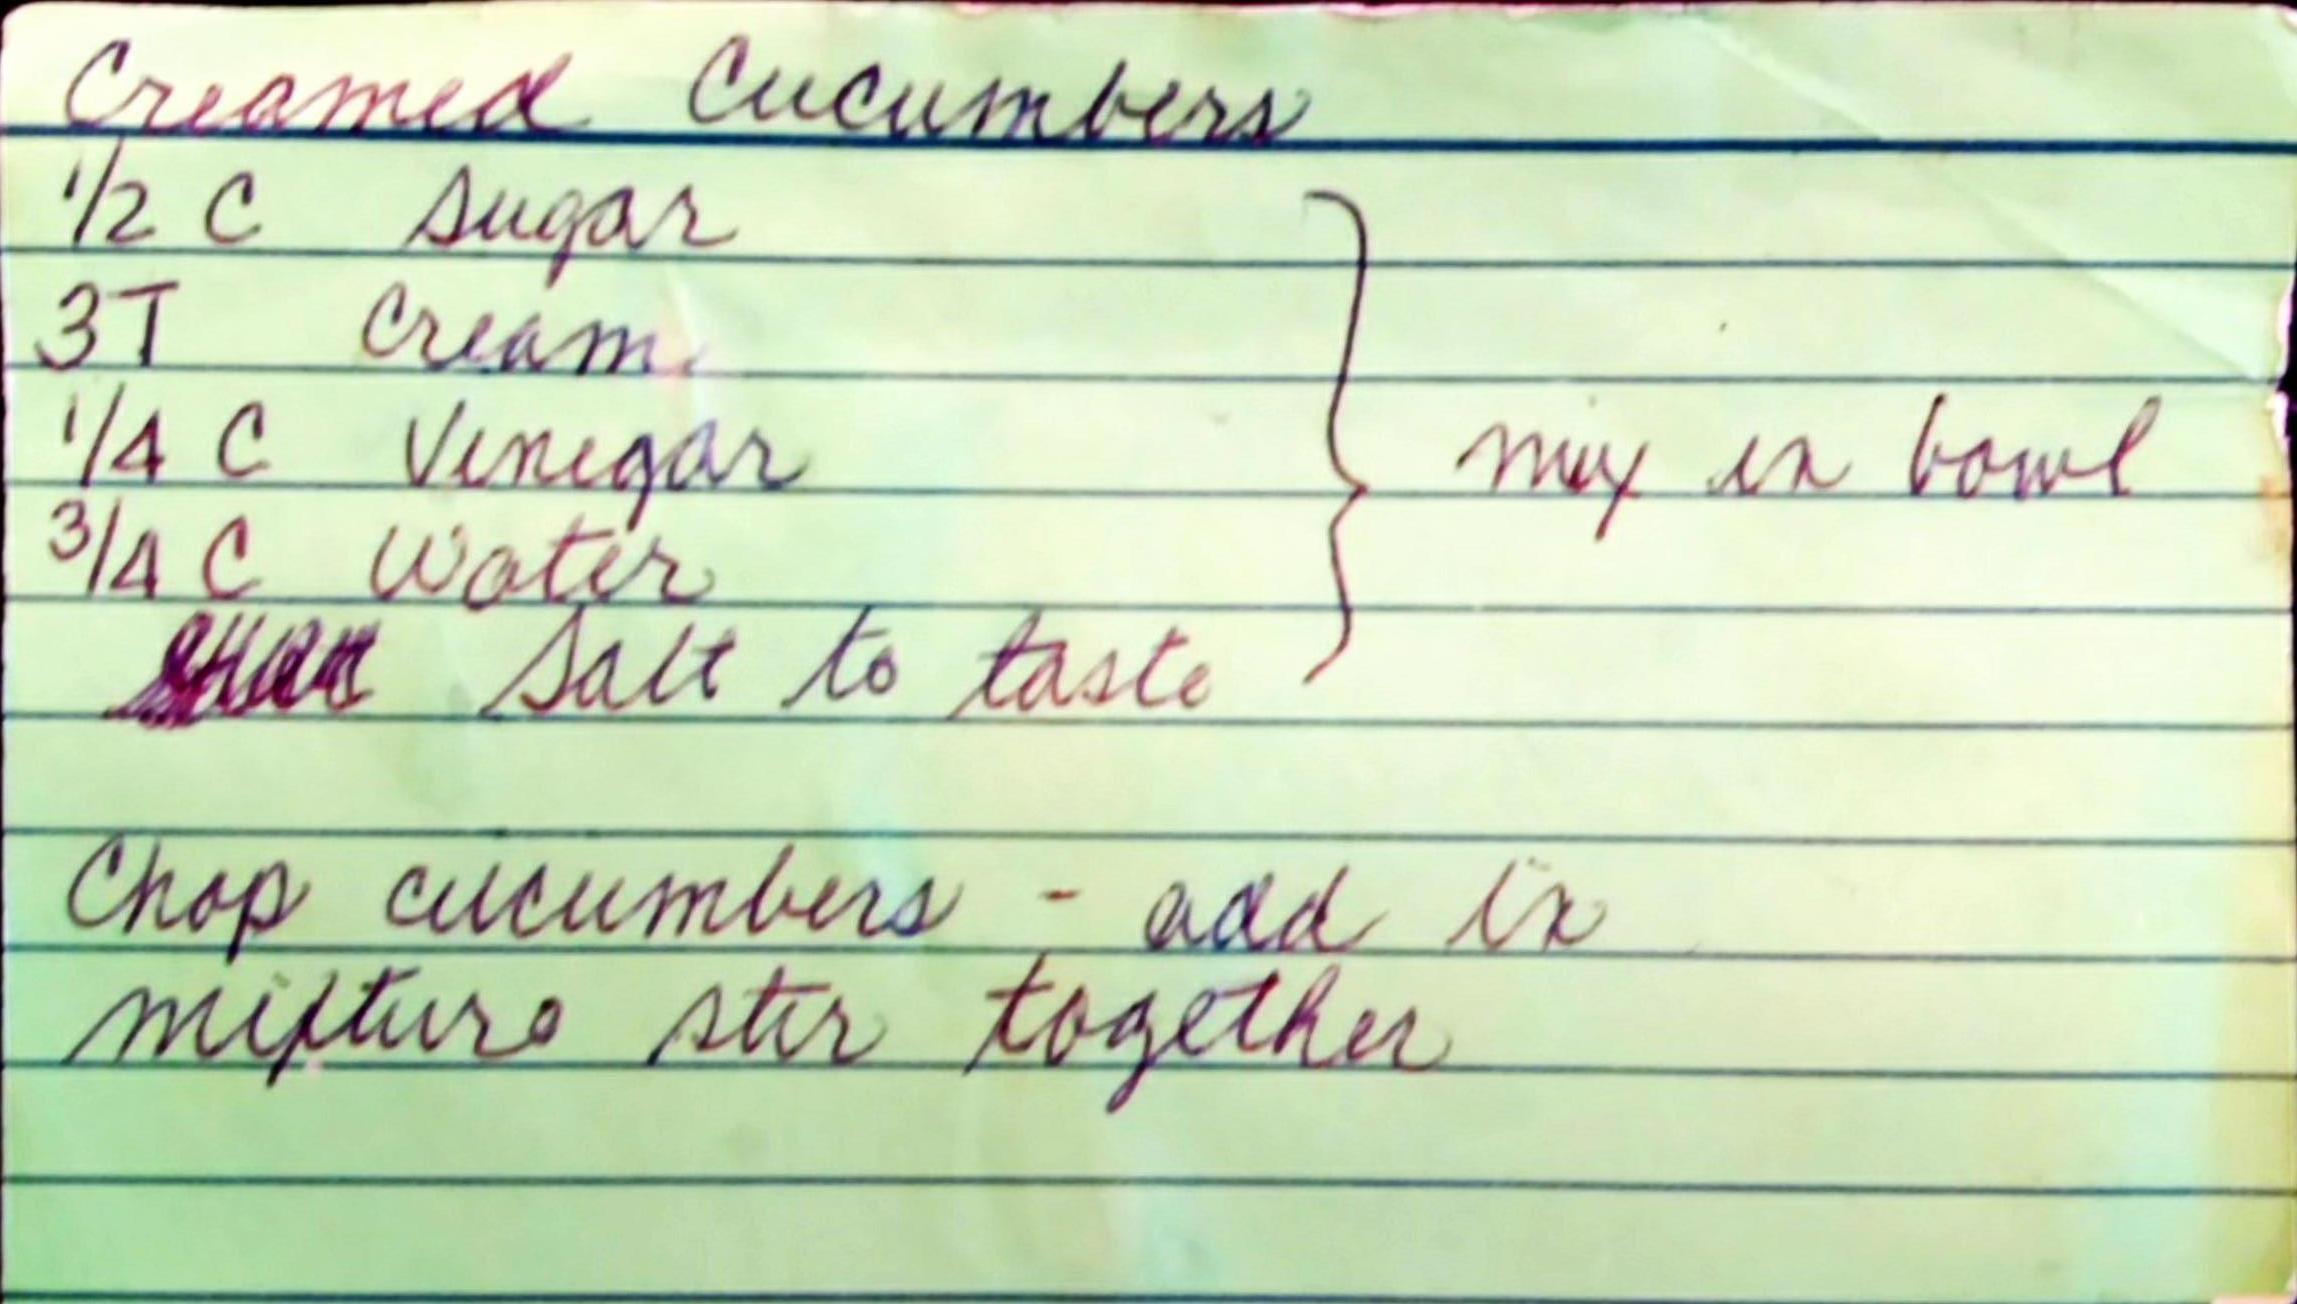 Creamed Cucumbers
1/2 C Sugar
3T Cream
1/4 C Vinegar
3/4 C Water
Salt to taste
mix in bowl
Chop cucumbers - add in
mixture stir together